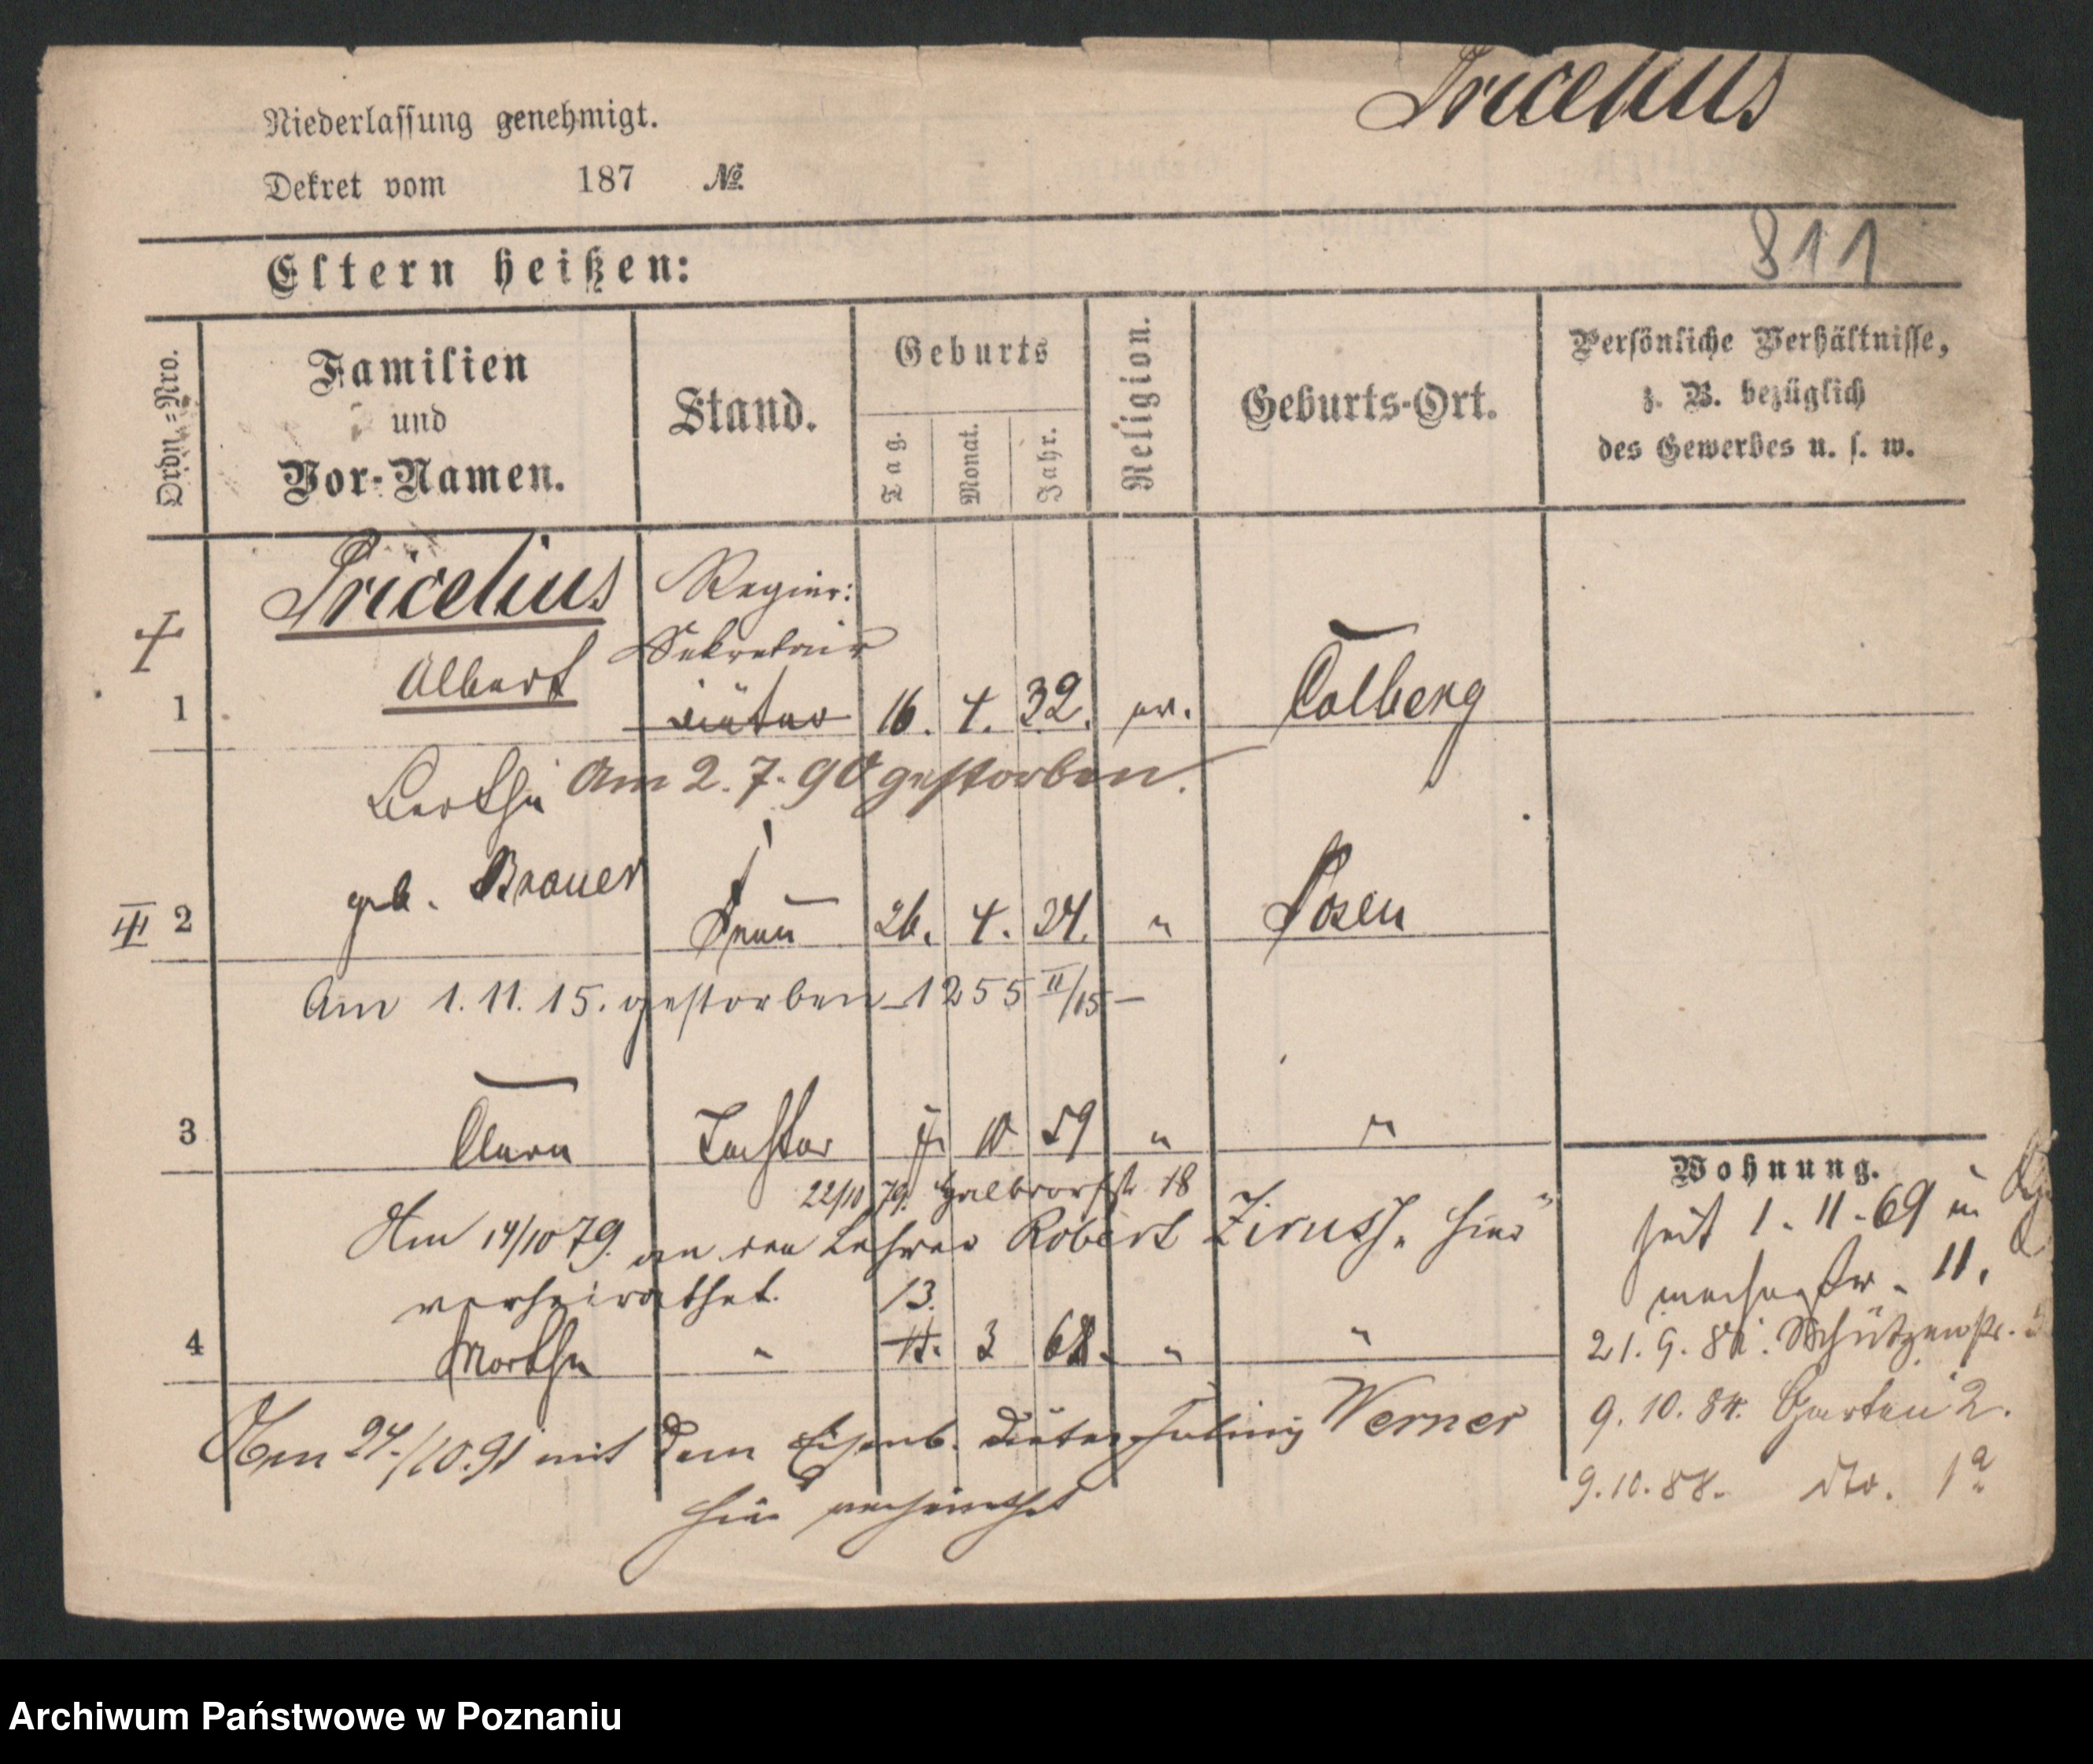 Pricelius
Niederlassung genehmigt.
Dekret vom 187 №
811
Eltern heißen:
Ordn.=Nro.
Familien und Vor-Namen.
Stand.
Geburts
Tag. Monat. Jahr.
Religion.
Geburts-Ort.
Persönliche Verhältnisse,
z. B. bezüglich
des Gewerbes u. s. w.
Pricelius Regier:
Sekretair
1 Albert Diätar 16. 4. 32. ev. Colberg
Bertha Am 2. 7. 90 gestorben.
III 2 geb. Brauer Frau 26. 4. 34. " Posen
Am 1. 11. 15. gestorben 1255 II/15 –
3 Clara Tochter 10 59 " "
22/10 79. Halbdorfstr 18
Am 14/10 79. an den Lehrer Robert hier
verheirathet. 13.
4 Martha " 11. 3 68. " "
Am 24./10.91 mit dem Eisenb. Diätar Werner
hier verheirathet
Wohnung.
seit 1. 11. 69 in
11.
21. 9. Schützenstr.
9. 10. 84. Garten 2.
9. 10. 88. dto. 1a
Archiwum Państwowe w Poznaniu